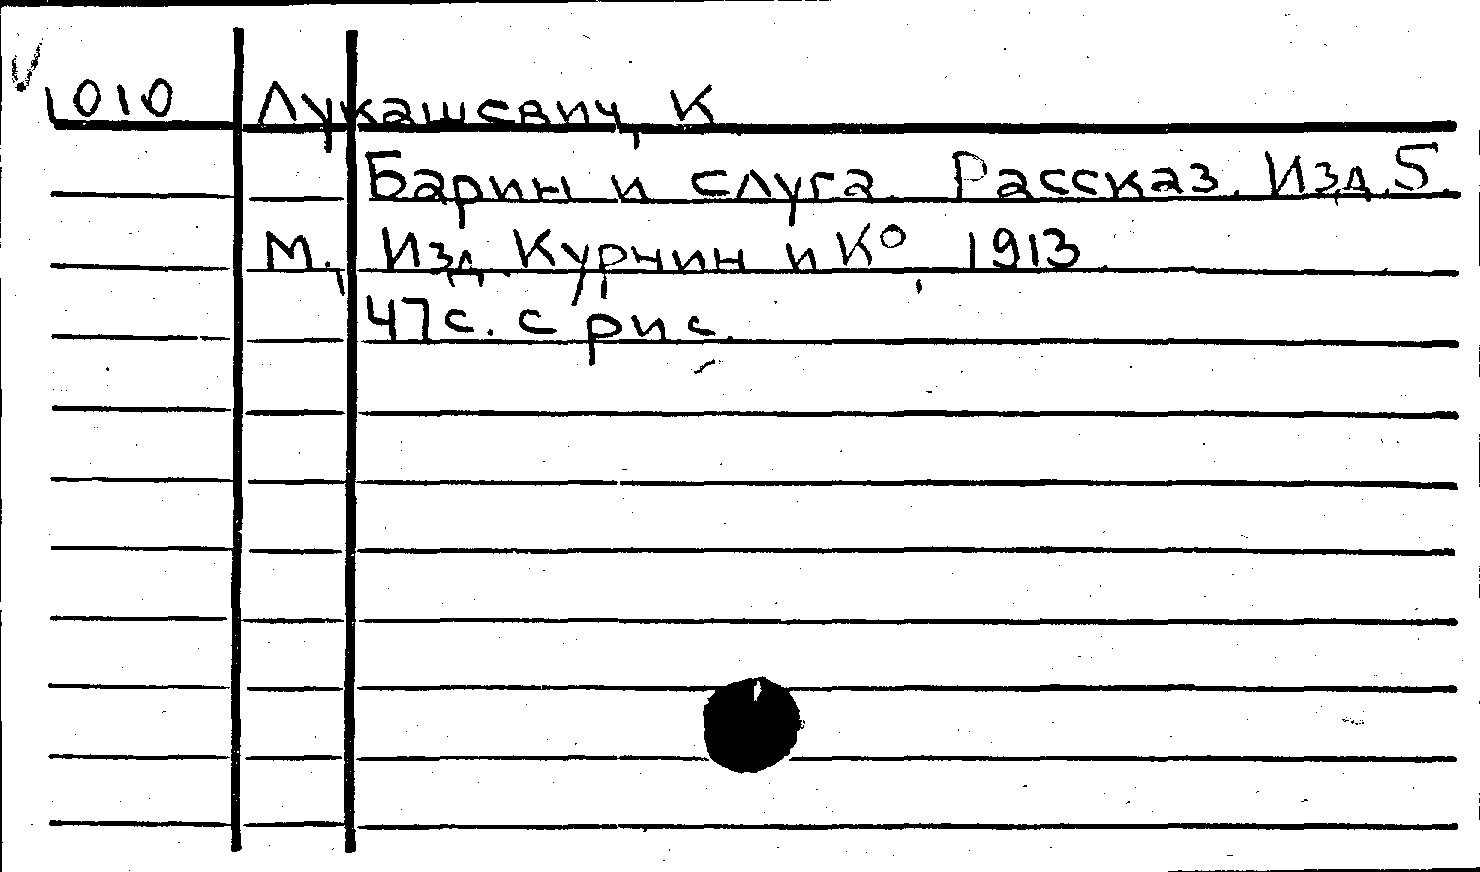 1010 Лукашевич, К
Барин и слуга. Рассказ. Изд. 5.
М., Изд. Курнин и К°, 1913.
47с. с рис.